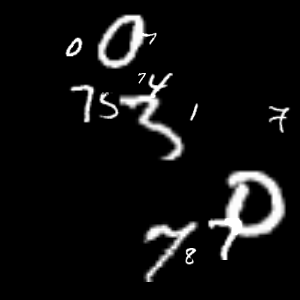 0 0 7
7 4
7 5 3 1 7
0
7 8 7